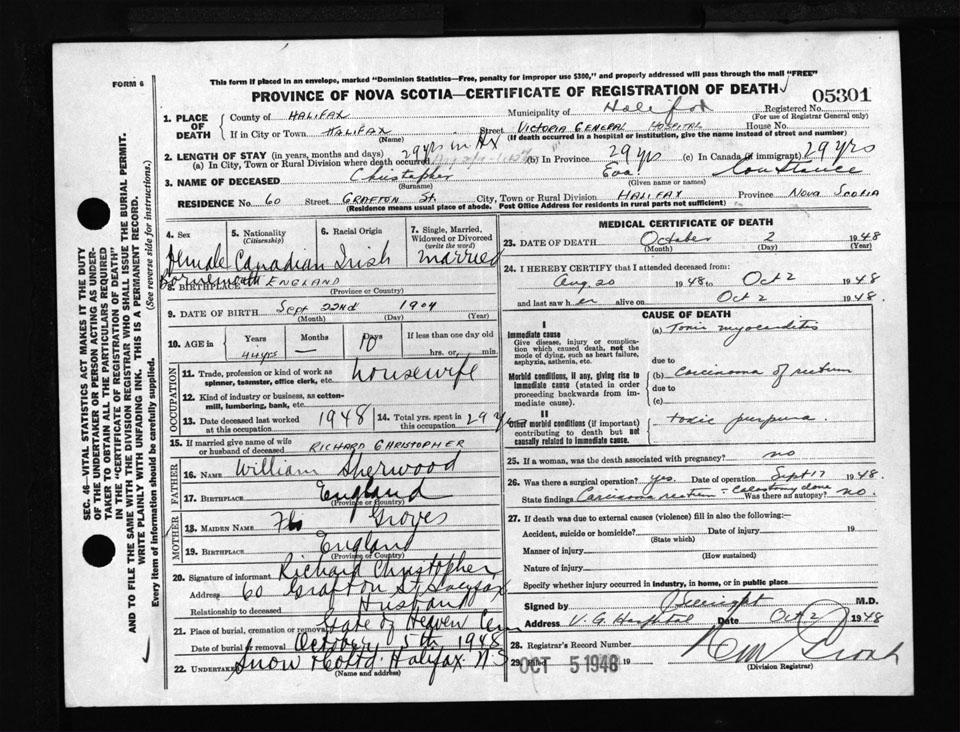 FORM 6
This form if placed in an envelope, marked "Dominion Statistics—Free, penalty for improper use $300," and properly addressed will pass through the mail "FREE"
PROVINCE OF NOVA SCOTIA—CERTIFICATE OF REGISTRATION OF DEATH
05301
1. PLACE OF DEATH
County of HALIFAX Municipality of Halifax Registered No.
(For use of Registrar General only)
If in City or Town HALIFAX Street VICTORIA GENERAL HOSPITAL House No.
(Name) (If death occurred in a hospital or institution, give the name instead of street and number)
2. LENGTH OF STAY (in years, months and days) 29 yrs in Hx
(a) In City, Town or Rural Division where death occurred (b) In Province 29 yrs (c) In Canada (if immigrant) 29 yrs
3. NAME OF DECEASED Christopher Eva Constance
(Surname) (Given name or names)
RESIDENCE No. 60 Street GRAFTON St. City, Town or Rural Division HALIFAX Province NOVA SCOTIA
(Residence means usual place of abode. Post Office Address for residents in rural parts not sufficient)
4. Sex 5. Nationality (Citizenship) 6. Racial Origin 7. Single, Married, Widowed or Divorced (write the word)
Female Canadian Irish Married
8. BIRTHPLACE Bornemouth ENGLAND
(Province or Country)
9. DATE OF BIRTH Sept 22nd 1904
(Month) (Day) (Year)
10. AGE in Years Months Days If less than one day old
44 yrs — 10 hrs. or min.
OCCUPATION
11. Trade, profession or kind of work as spinner, teamster, office clerk, etc. housewife
12. Kind of industry or business, as cotton-mill, lumbering, bank, etc.
13. Date deceased last worked at this occupation 1948 14. Total yrs. spent in this occupation 29 yrs
15. If married give name of wife or husband of deceased RICHARD CHRISTOPHER
FATHER
16. Name William Sherwood
17. Birthplace England
(Province or Country)
MOTHER
18. Maiden Name Flo Groves
19. Birthplace England
(Province or Country)
20. Signature of informant Richard Christopher
Address 60 Grafton St Halifax
Relationship to deceased Husband
21. Place of burial, cremation or removal Gate of Heaven Cem
Date of burial or removal October 5th 1948
22. Undertaker Snow Co Ltd. Halifax N.S
(Name and address)
MEDICAL CERTIFICATE OF DEATH
23. DATE OF DEATH October 2 1948
(Month) (Day) (Year)
24. I HEREBY CERTIFY that I attended deceased from:
Aug. 20 1948 to Oct 2 1948
and last saw her alive on Oct 2 1948.
CAUSE OF DEATH
I
Immediate cause
Give disease, injury or complication which caused death, not the mode of dying, such as heart failure, asphyxia, asthenia, etc.
(a) toxic myocarditis
due to
Morbid conditions, if any, giving rise to immediate cause (stated in order proceeding backwards from immediate cause).
(b) carcinoma of rectum
due to
(c)
II
Other morbid conditions (if important) contributing to death but not causally related to immediate cause.
toxic purpura.
25. If a woman, was the death associated with pregnancy? no
26. Was there a surgical operation? yes. Date of operation Sept 17 1948.
State findings Carcinoma rectum – colostomy done Was there an autopsy? no.
27. If death was due to external causes (violence) fill in also the following:—
Accident, suicide or homicide? Date of injury 19
(State which)
Manner of injury
(How sustained)
Nature of injury
Specify whether injury occurred in industry, in home, or in public place
Signed by M.D.
Address V. G. Hospital Date Oct 2 1948
28. Registrar's Record Number
29. Filed OCT 5 1948 19
(Division Registrar)
SEC. 46—VITAL STATISTICS ACT MAKES IT THE DUTY
OF THE UNDERTAKER OR PERSON ACTING AS UNDER-
TAKER TO OBTAIN ALL THE PARTICULARS REQUIRED
IN THE "CERTIFICATE OF REGISTRATION OF DEATH"
AND TO FILE THE SAME WITH THE DIVISION REGISTRAR WHO SHALL ISSUE THE BURIAL PERMIT.
WRITE PLAINLY WITH UNFADING INK. THIS IS A PERMANENT RECORD.
Every item of information should be carefully supplied. (See reverse side for instructions.)